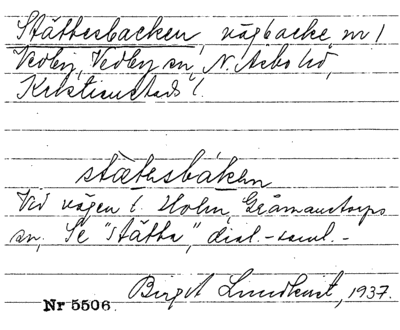 Stättesbacken, vägbacke, nr 1
Vedby, Vedby sn, N. Åsbo hd,
Kristianstads l.
stätesbáken
Vid vägen t. Holm, Gråmanstorps
sn, Se "stätta", dial.-saml.-
Birgit Lundkvist, 1937.
Nr 5506.